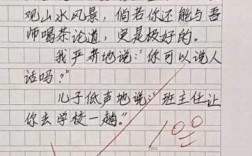 观山水风景，倘若你还能与吾
师喝茶论道，定是极好的。
我严肃地说：“你可以说人
话吗？”
儿子低声地说：“班主任让
你去学校一趟。”
100